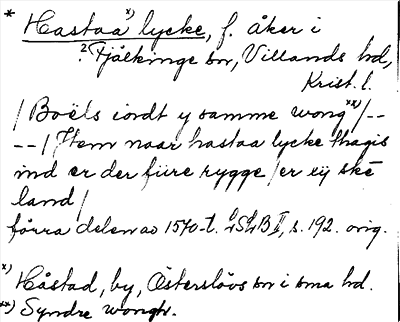 * Hastaa x) lycke, f. åker i
? Fjälkinge sn, Villands hd,
Krist. l.
/ Boëls iordt y samme wong xx) / --
-- / Item naar hastaa lycke thagis
ind er der fiire rygge / er eÿ skè
land /
förra delen av 1570-t. LSLB II, s. 192. orig.
x) Håstad, by, Österslövs sn i sma hd.
xx) Syndre wongh.